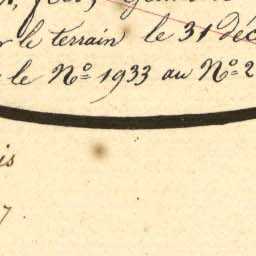 r le terrain le 31 déc
le Nº 1933 au Nº 2
is
7